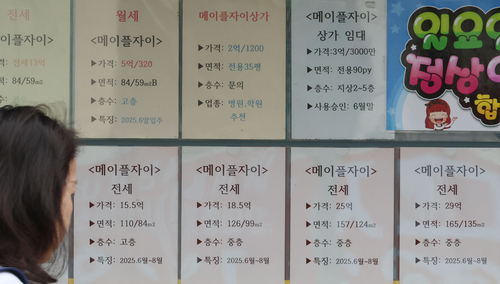 전세
가격: 전세13억
면적: 84/59m2
층수: 중층
월세
<메이플자이>
▶가격: 5억/320
▶면적: 84/59m2B
▶층수: 고층
▶특징: 2025.6말입주
메이플자이상가
▶가격: 2억/1200
▶면적: 전용35평
▶층수: 문의
▶업종: 병원,학원
추천
<메이플자이>
상가 임대
▶가격:3억/3000만
▶면적: 전용90py
▶층수: 지상2~5층
▶사용승인: 6월말
일요일
정상
<메이플자이>
전세
▶가격: 15.5억
▶면적: 110/84m2
▶층수: 고층
▶특징: 2025.6월~8월
<메이플자이>
전세
▶가격: 18.5억
▶면적: 126/99m2
▶층수: 중층
▶특징: 2025.6월~8월
<메이플자이>
전세
▶가격: 25억
▶면적: 157/124m2
▶층수: 중층
▶특징: 2025.6월~8월
<메이플자이>
전세
▶가격: 29억
▶면적: 165/135m2
▶층수: 중층
▶특징: 2025.6월~8월